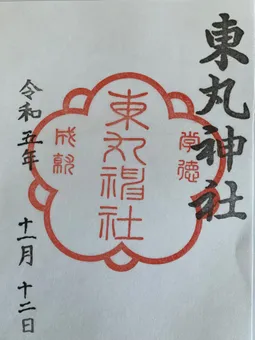 東丸神社
学徳
東丸神社
成就
令和五年
十一月
十二日